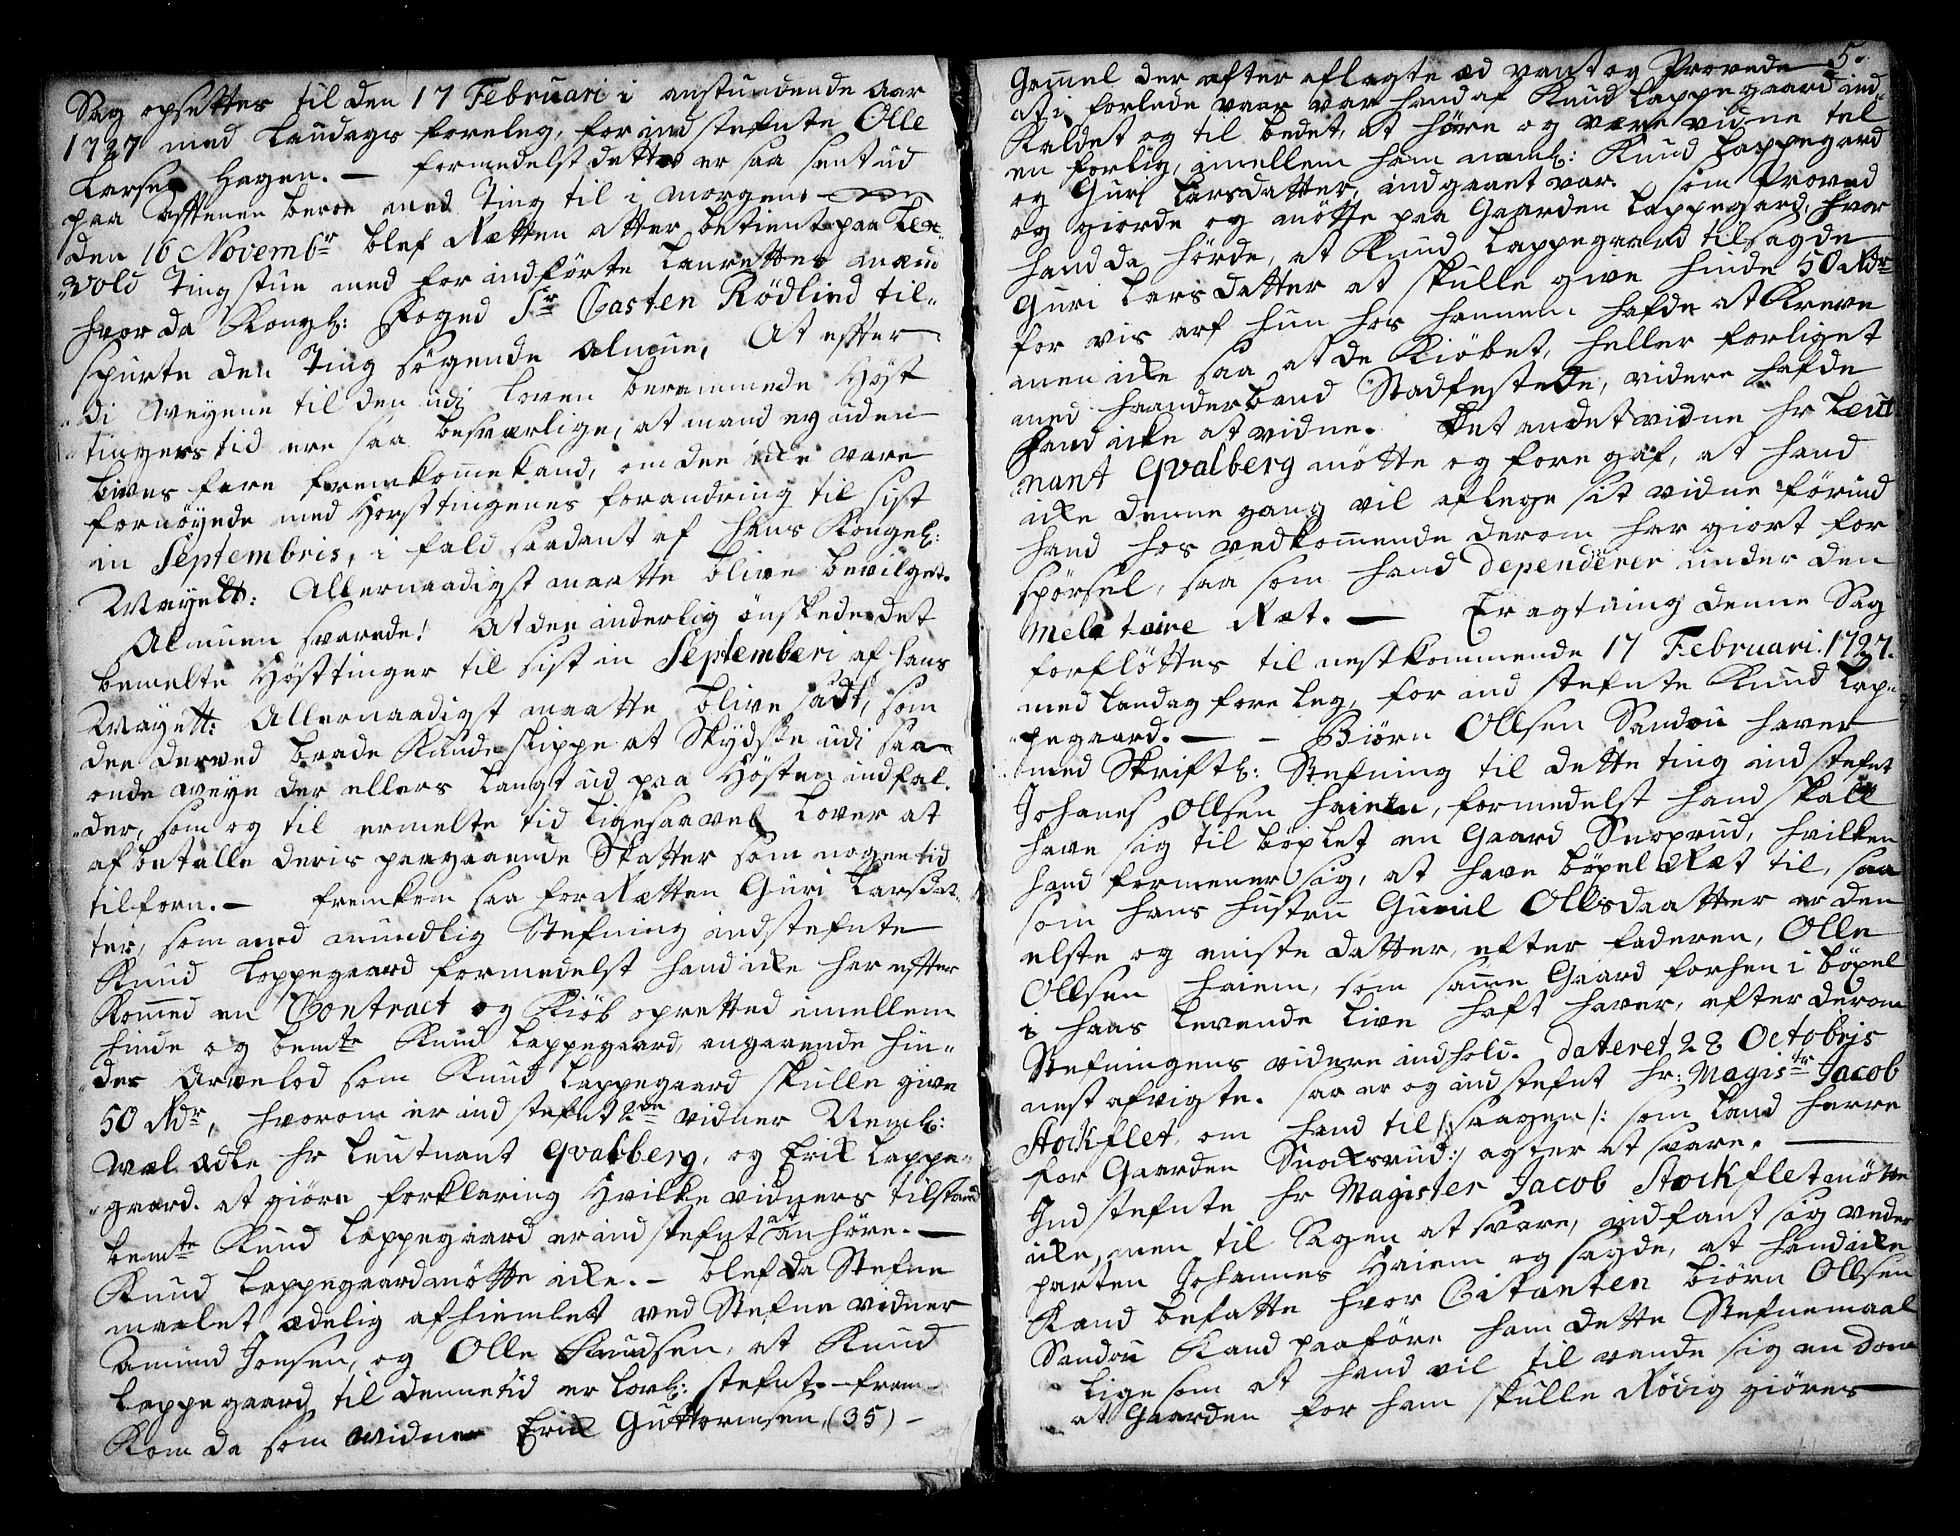 Sag opsettes til den 17 Februari i anstundende Aar
1727 med Laudags foreleg, for ind stefnte Olle
Larsen Hagen. — formedelst dette er saa sent ud
paa Afftenen beroe med Ting til i morgen.
den 16 Novembr blef Retten atter betient paa
vold Tingstue med for indførte Laurettes mænd
hvor da Kongl: Foged Sr Casten Rödlind til-
spurte den Ting søgende Almue, At efter
di Weyene til den udj Loven berammede Høst
tingers tid ere saa besværlige, at mand ey uden
Livns fare fremkomme kand, om dee icke vare
fornøyede med Høsttingenes forandring til sist
in Septembris, i fald saadant af Hans Kongel:
Mayestt: Allernaadigst maatte blive bevilget.
Almuen svarede! At dee inderlig ønskede det
bemelte Høsttinger til sist in Septemberi af hans
Mayestt: Allernaadigst maatte blive sadt, som
dee derved baade kunde slippe at Skydsse udi saa
onde Weye der ellers langt ud paa Høsten indfal-
der, som og til ermelte tid ligesaavel Lover at
af betalle deris paagaaende Skatter som nogen tid
tilforn. — fremkom saa for Retten Guri Larsdat-
ter, som med mundlig Stefning indstefnte
Knud Loppegaard formedelst hand icke har effter
Kommed en Contract og Kiøb opretted imellem
hinde og bemte Knud Loppegaard, angaaende hin-
des Arvelod som Knud Loppegaard skulle give
50 Rdr, hvorom er ind stefnt 2de vidner Neml:
Wel Edle Hr Leutnant Qvalberg, og Erik Loppe-
gaard. at giøre forklaring Hvilke vidners tilstand
bemte Knud Loppegaard er ind stefnt at an høre. —
Knud Loppegaard mötte icke. — blef da Stefne
maalet ædelig afhiemlet ved Stefne vidner
Amund Jonsen, og Olle Knudsen, at Knud
Loppegaard til denne tid er lovl: stefnt. — frem-
Kom da som vidne Erik Guttormsen (35) —
5.
Gammel der after aflagte æd vant og Provede
at i forlede vaar var hand af Knud Loppegaard ind-
Kaldet og til bedet, at høre og være vidne til
en forlig, imellem ham neml: Knud Loppegaard
og Guri Larsdatter, indgaaet var. som Proved
og giorde og mötte paa Gaarden Loppegaard, hvor
hand da hörde, at Knud Loppegaard tilsagde
Guri Larsdatter at skulle give hinde 50 Rdr
for vis arf hun hos hannem hafde at Kreve
men icke saa at de Kiöbet, heller forliget
med haanderband Stadfestede, videre hafde
hand icke at vidne. Det andet vidne hr Leut
nant Qvalberg mötte og fore gaf, at hand
icke denne gang vil aflege sit vidne förind
hand hos vedkommende derom har giort for
spörsel, saa som hand dependerer under den
melitaire Ret. — Eragtning denne Sag
forflöttes til nestkommende 17 Februari. 1727.
med Landag fore leg, for ind stefnte Knud Lop-
pegaard. — Biörn Ollsen Sandou haver
med Skriftl: Stefning til dette ting ind stefnt
Johanes Ollsen Haiem, formedelst hand skall
have sig til böxlet en Gaard Snoxrud, hvilken
hand formener sig, at have böxel Ret til, saa
som hans Hustru Gunil Ollsdaatter er den
elste og eniste datter, efter faderen, Olle
Ollsen Haiem, som samme Gaard forhen i böxel
i hans levende live haft haver, efter derom
Stefningens videre indhold. Dateret 28 Octobris
nest afvigte. saa er og indstefnt hr: Magistr Jacob
Stockflet, om hand til /: saagen /: som Land herre
for Gaarden Snoxrud:/ agter at svare. —
Indstefnte Hr Magister Jacob Stockflet mötte
icke, men til Sagen at svare, indfant sig veder
parten Johannes Haiem og sagde, at hand icke
Kand befatte hvor Citanten Biörn Ollsen
Sandou Kand paaföre ham dette Stefnemaal
lige som at hand vil til vende sig en dom
at Gaarden for ham skulle Rödig giöres